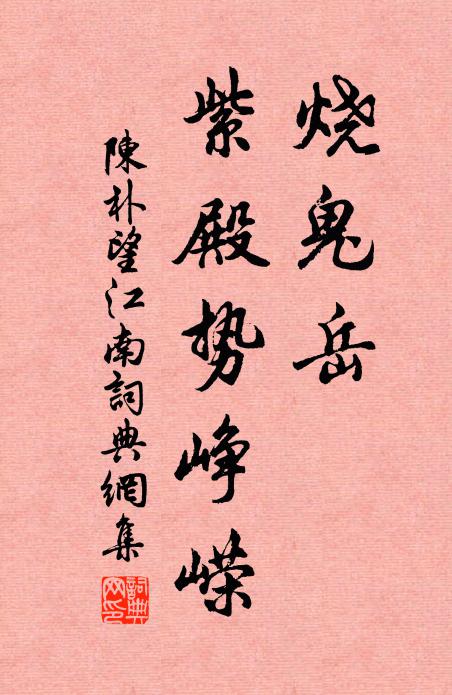 烧鬼岳
紫殿势峥嵘
陳朴望江南詞典網集
詞典網印